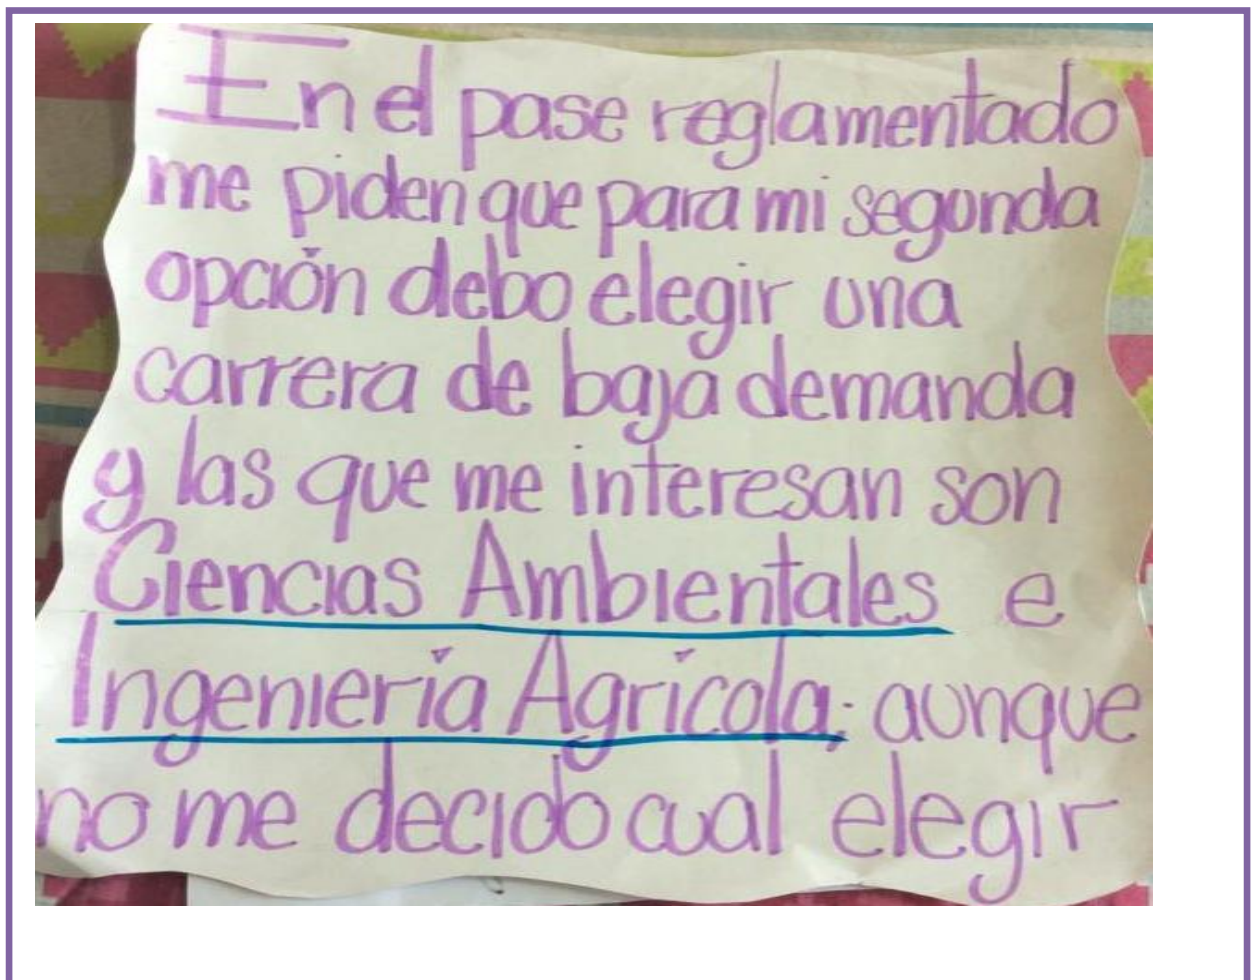 En el pase reglamentado
me piden que para mi segunda
opción debo elegir una
carrera de baja demanda
y las que me interesan son
Ciencias Ambientales e
Ingeniería Agrícola; aunque
no me decido cual elegir